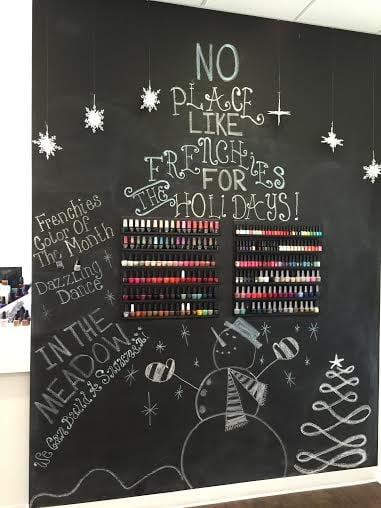 NO
PLACE
LIKE
FRENCHIES
FOR
THE HOLIDAYS!
Frenchies
Color Of
The Month
Dazzling
Dance
IN THE
MEADOW
We Can Build A Snowman!